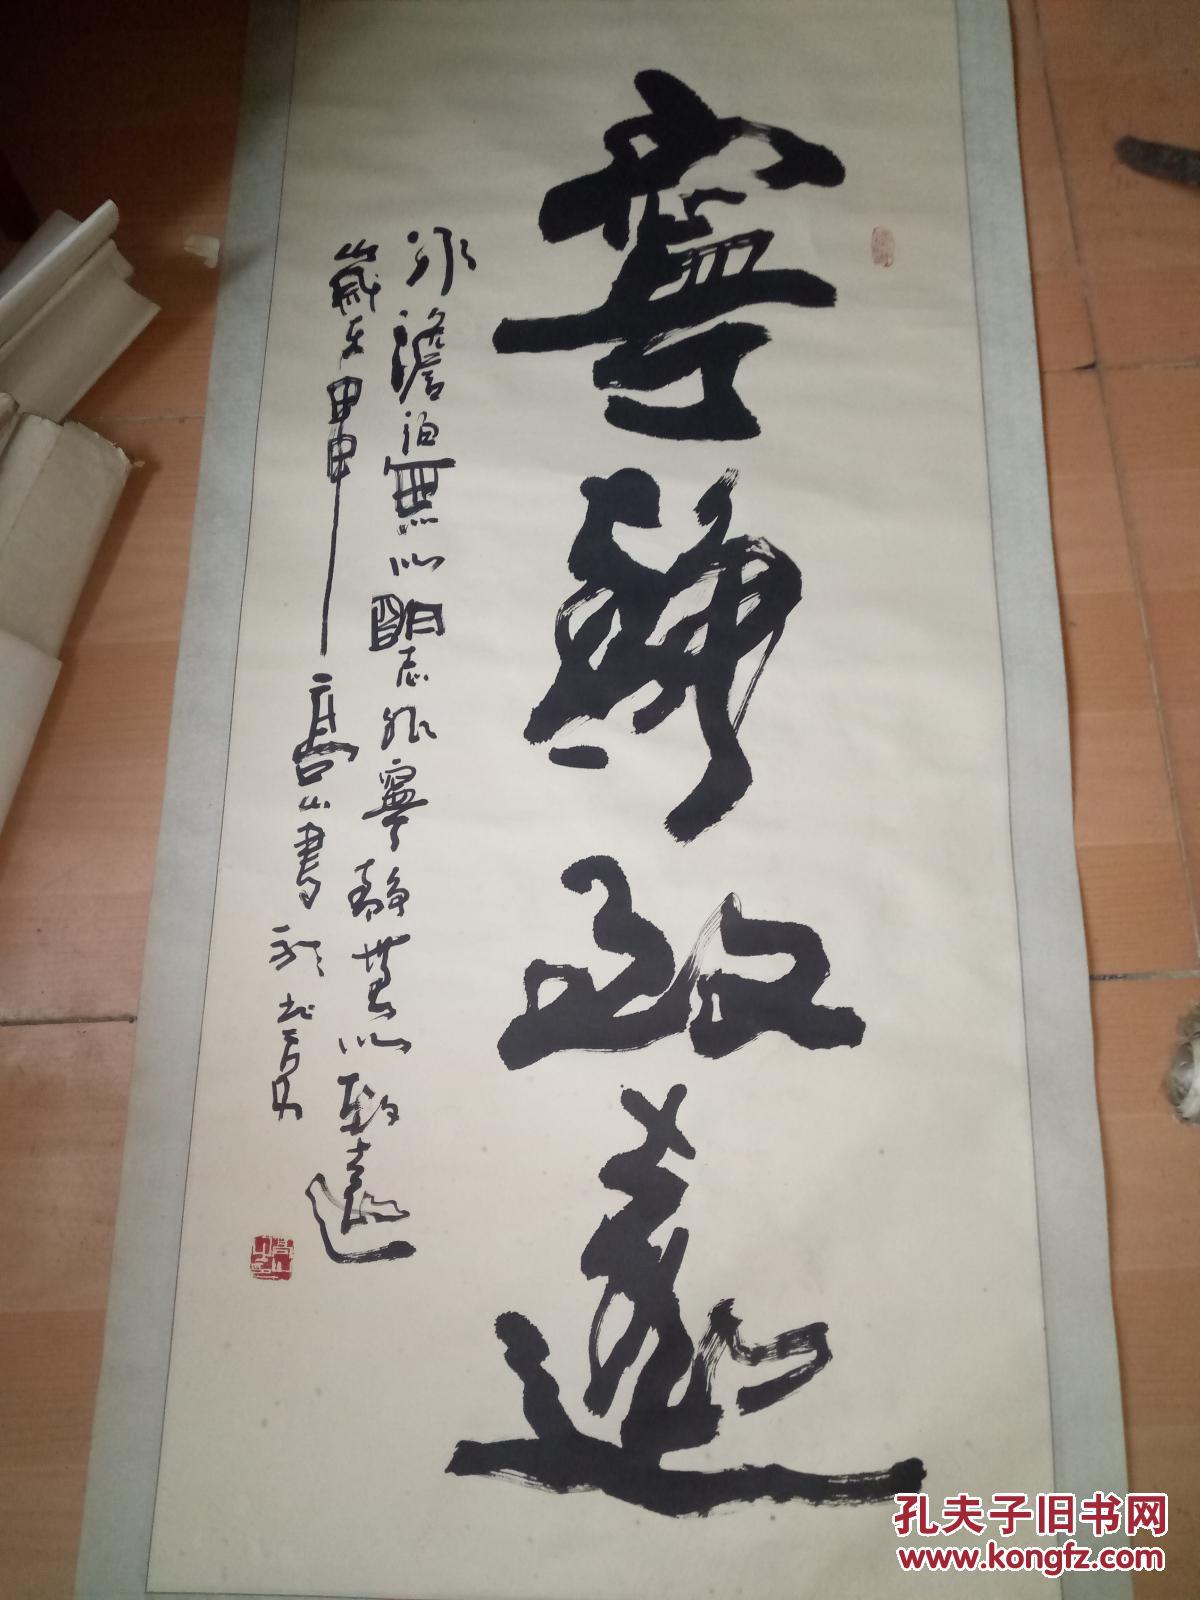 寧靜致遠
非澹泊無以明志非寧靜無以致遠
歲在甲申高山書於北京
孔夫子旧书网
www.kongfz.com